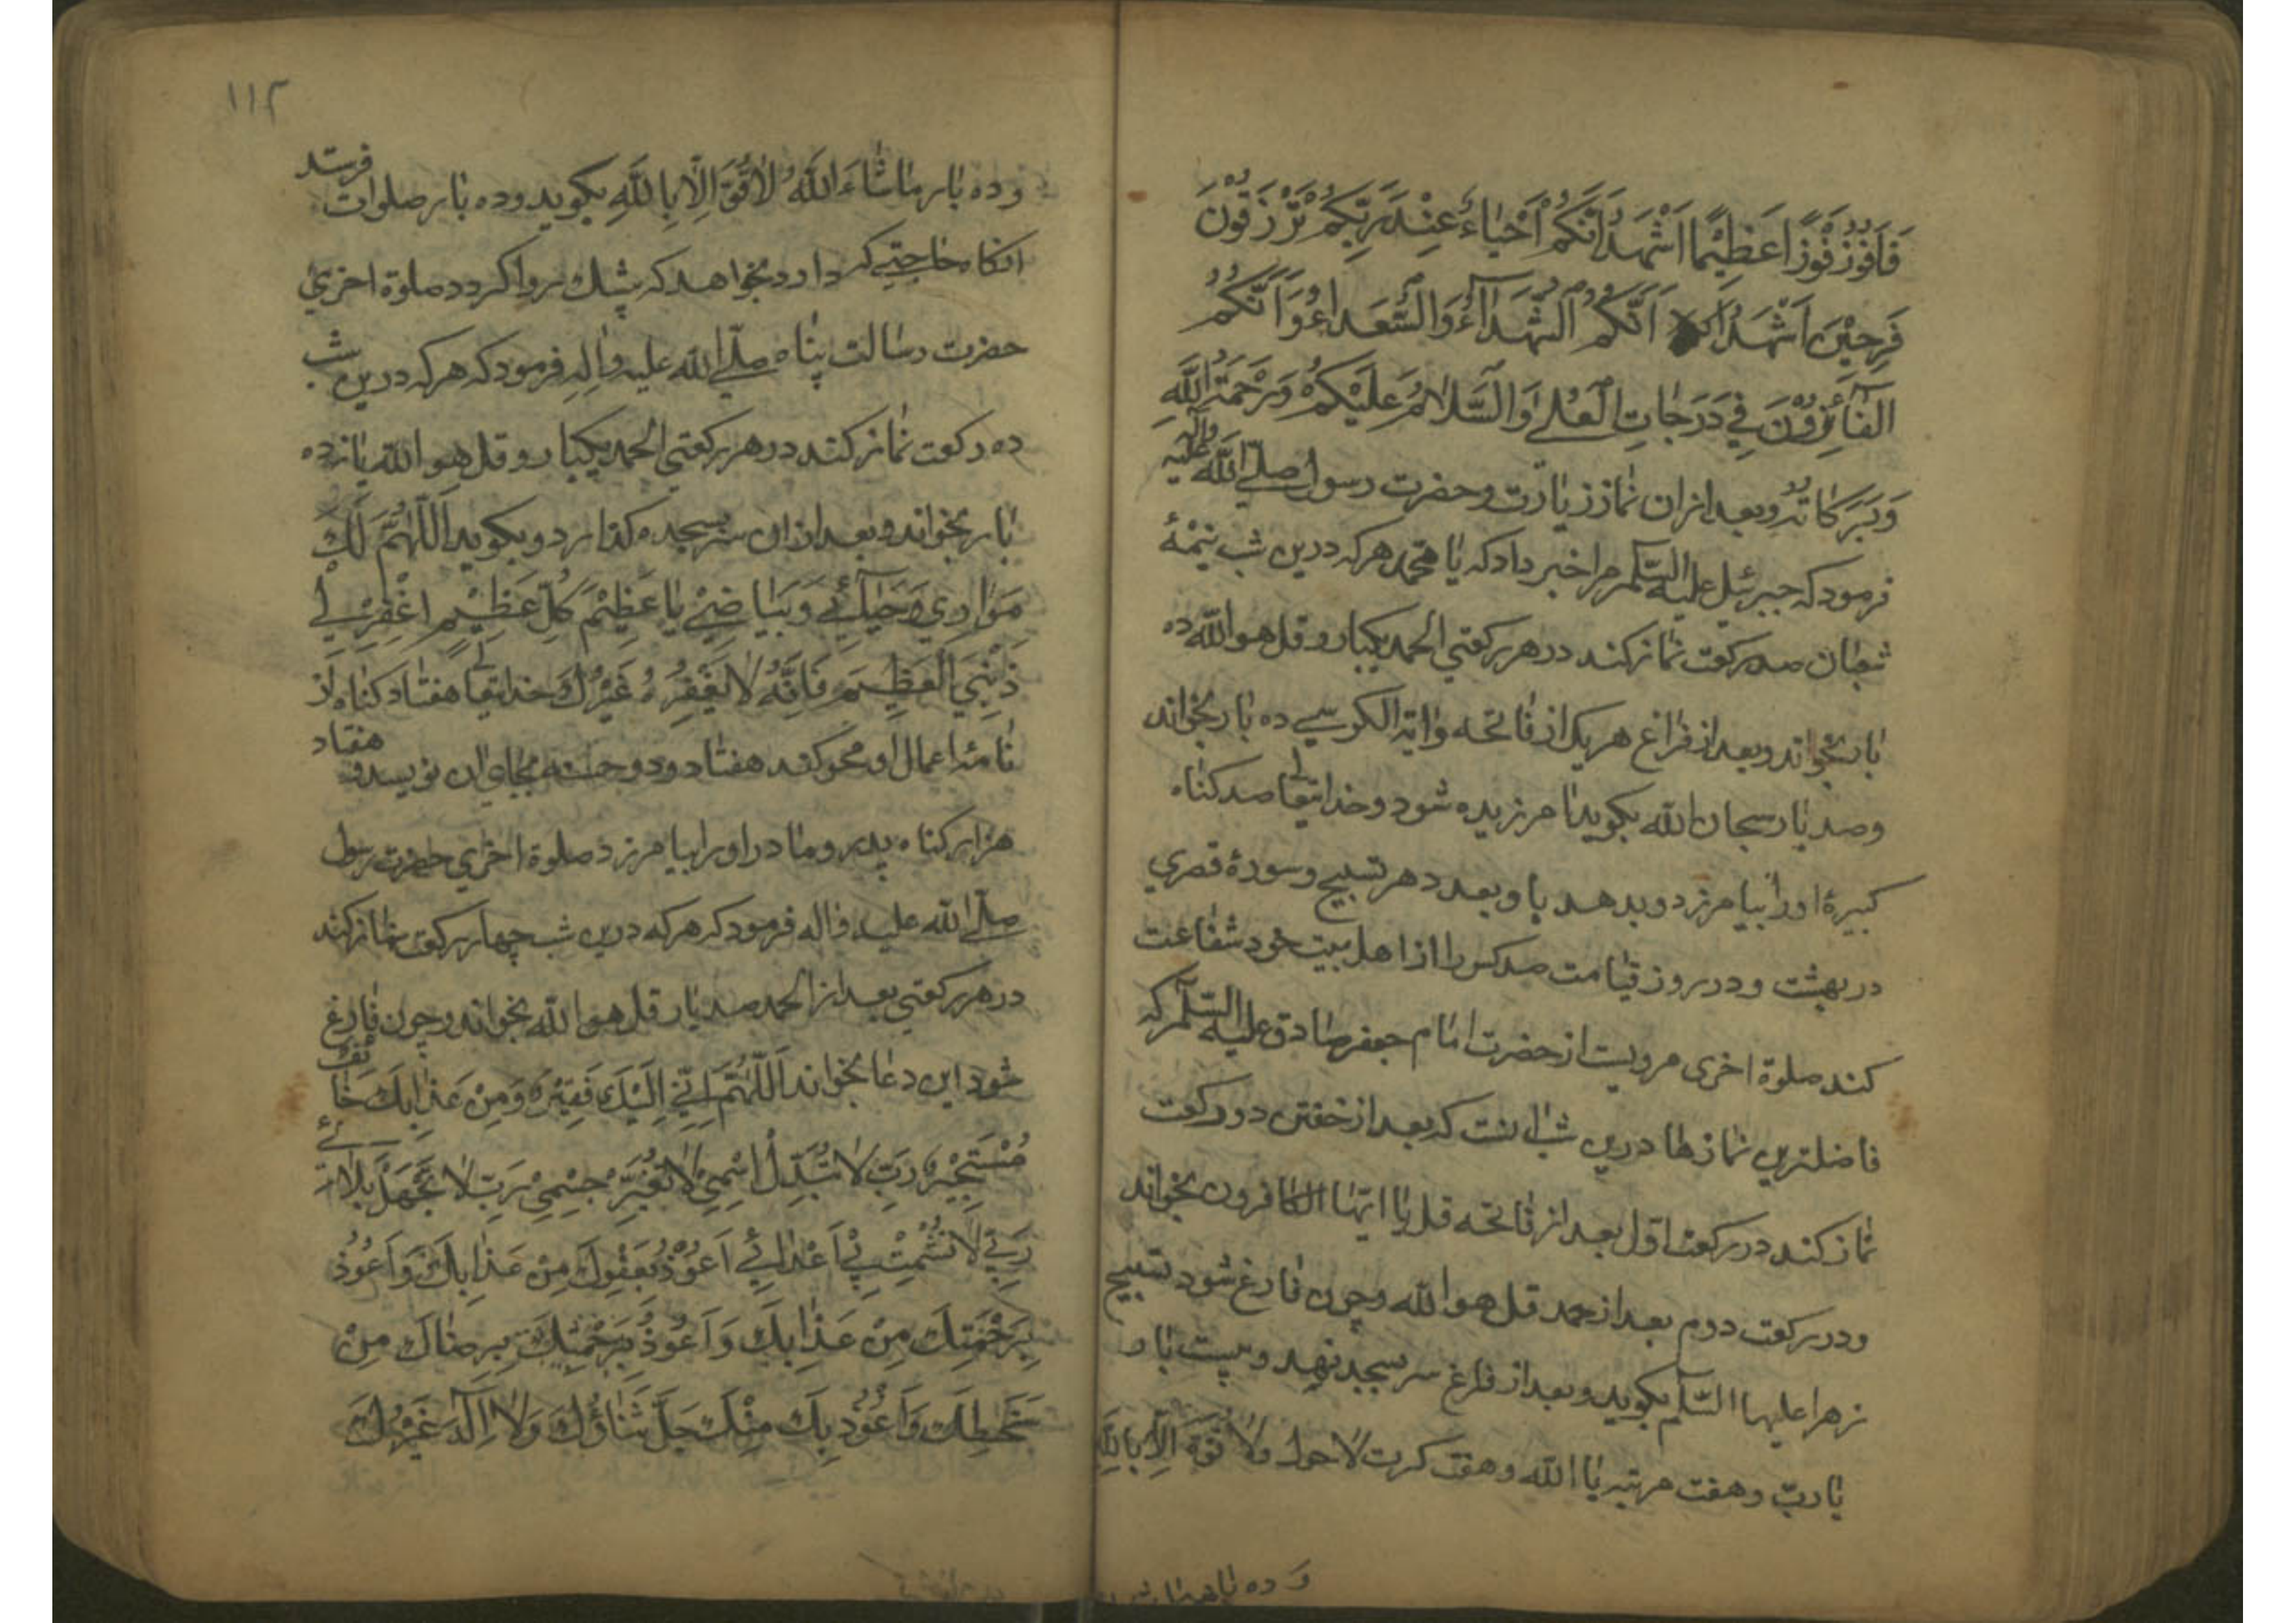 فَاَفُوزَ فَوْزًا عَظِيْمًا اَشْهَدُ اَنَّكُمْ اَحْيَاءٌ عِنْدَ رَبِّكُمْ تُرْزَقُوْنَ
فَرِحِيْنَ اَشْهَدُ اَنَّكُمُ الشُّهَدَآءُ وَالسُّعَدَاءُ وَاَنَّكُمُ
الْفَآئِزُوْنَ فِي دَرَجَاتِ الْعُلٰى وَالسَّلَامُ عَلَيْكُمْ وَرَحْمَةُ اللّٰهِ
وَبَرَكَاتُهُ وبعد ازان نماز زيارت وحضرت رسول صلّى اللّٰه عليه وآله
فرمود كه جبرئيل عليه السّلم مرا خبر داد كه يا محمد هر كه درين شب نيمهٔ
شعبان صد ركعت نماز كند در هر ركعتي الحمد يكبار و قل هو اللّٰه ده
بار بخواند وبعد از فراغ هر يك از فاتحه واية الكرسي ده بار بخواند
وصد بار سبحان اللّٰه بكويد نا مرزيده شود وخدايتعالى صد كناه
كبيرهٔ اورا بيامرزد و بدهد با و بعد د هر تسبيح وسورهٔ قصري
در بهشت ودر روز قيامت صد كس را از اهل بيت خود شفاعت
كند صلوة اخرى مرويست از حضرت امام جعفر صادق عليه السّلم كه
فاضلترين نمازها درين شب انست كه بعد از خفتن دو ركعت
نماز كند در ركعت اوّل بعد از فاتحه قل يا ايّها الكافرون بخواند
ودر ركعت دوم بعد از حمد قل هو اللّٰه وچون فارغ شود تسبيح
زهرا عليها السّلم بكويد وبعد از فارغ سر بسجده نهد وبيست بار
يا ربّ وهفت مرتبه يا اللّٰه وهفت كرت لا حول ولا قوّة الّا باللّٰه
وده بار
١١٢
وده بار ماشَاءَ اللّٰهُ لَاقُوَّةَ اِلَّا بِاللّٰهِ بكويد وده بار صلوات فرستد
انكاه حاجتي كه دارد بخواهد كه بيشك روا كردد صلوة اخري
حضرت رسالت پناه صلّى اللّٰه عليه واٰله فرمود كه هر كه درين شب
ده ركعت نماز كند در هر ركعتي الحمد يكبار وقل هو اللّٰه يازده
بار بخواند وبعد ازان سر بسجده كذارد وبكويد اَللّٰهُمَّ لَكَ
سَوَادِي وَخَيَالِي وَبَيَاضِيْ يَا عَظِيْمَ كُلِّ عَظِيْمٍ اِغْفِرْ لِي
ذَنْبِيَ الْعَظِيْمَ فَاِنَّهُ لَا يَغْفِرُهُ غَيْرُكَ خدايتعالى هفتاد كناه از
نامهٔ اعمال او محو كند هفتاد ودو حسنه بجاي ان نويسد و هفتاد
هزار كناه پدر ومادر اورا بيامرزد صلوة اخري حضرت رسول
صلّى اللّٰه عليه واله فرمود كه هر كه درين شب چهار ركعت نماز كند
در هر ركعتي بعد از الحمد صد بار قل هو اللّٰه بخواند وچون فارغ
شود اين دعا بخواند اَللّٰهُمَّ اِنِّي اِلَيْكَ فَقِيْرٌ وَمِنْ عَذَابِكَ خَائِفٌ
مُسْتَجِيْرٌ رَبِّ لَا تُبَدِّلْ اِسْمِيْ لَا تُغَيِّرْ جِسْمِيْ رَبِّ لَا تَجْهَدْ بَلَائي
رَبِّي لَا تُشْمِتْ بِيْ اَعْدَائِي اَعُوْذُ بِعَفْوِكَ مِنْ عَذَابِكَ وَاَعُوْذُ
بِرَحْمَتِكَ مِنْ عَذَابِكَ وَاَعُوذُ بِرَحْمَتِكَ بِرِضَاكَ مِنْ
سَخَطِكَ وَاَعُوْذُ بِكَ مِنْكَ جَلَّ ثَنَاؤُكَ وَلَا اِلٰهَ غَيْرُكَ